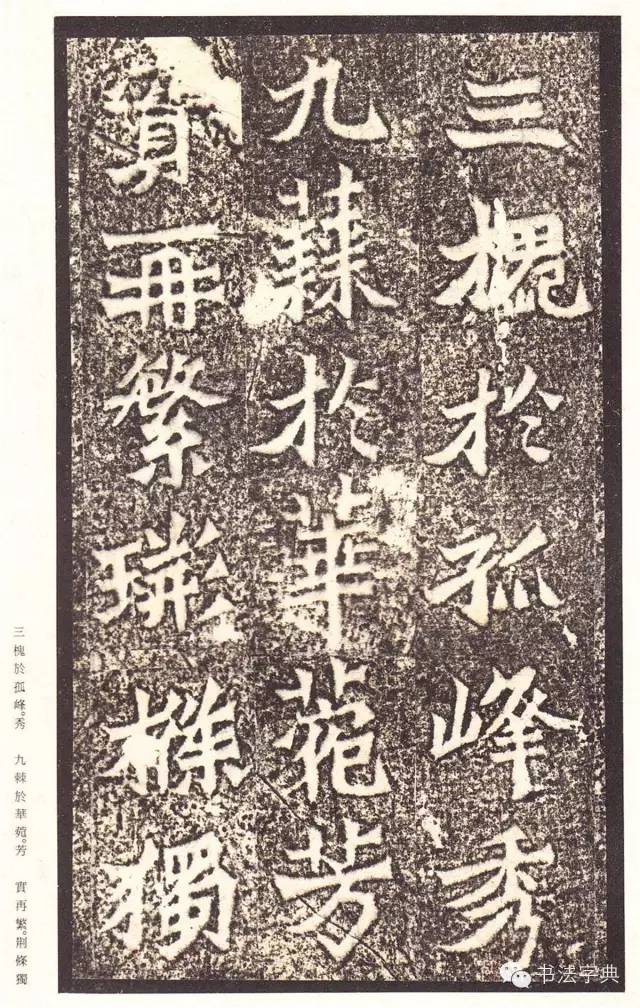 三槐於孤峰秀
九棘於華菀芳
實再繁荆條獨
三槐於孤峰。秀 九棘於華菀。芳 實再繁。荆條獨
书法字典